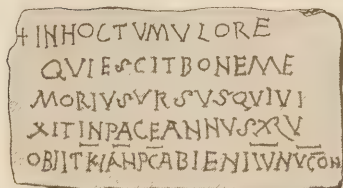 +INHOCTVMVLORE
QVIESCITBONEME
MORIVSVRSVSQVIVI
XITINPACEANNVSXRV
OBIIT KLANPCABIENIIVNVCON